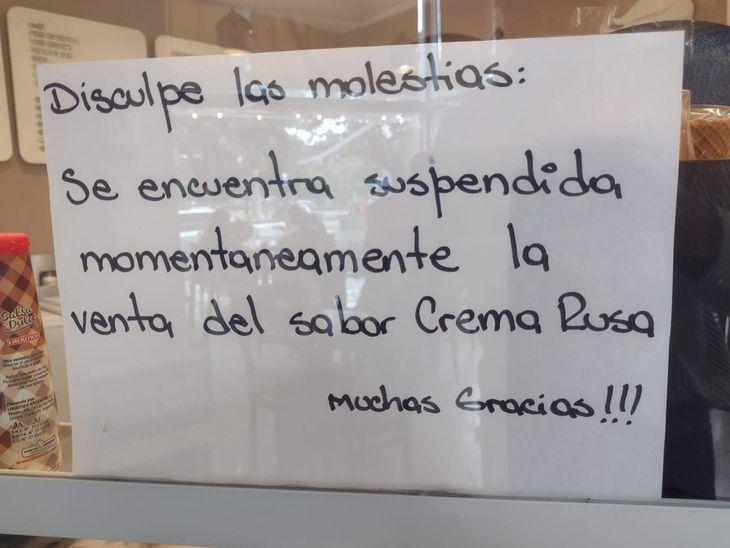 Disculpe las molestias:
Se encuentra suspendida
momentaneamente la
venta del sabor Crema Rusa
Muchas Gracias!!!
Salsa
Dulce